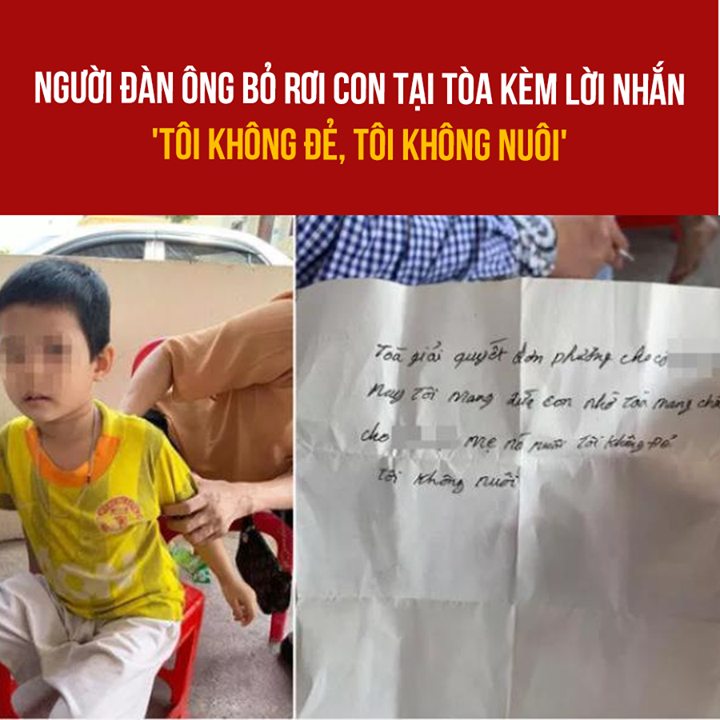 NGƯỜI ĐÀN ÔNG BỎ RƠI CON TẠI TÒA KÈM LỜI NHẮN
'TÔI KHÔNG ĐẺ, TÔI KHÔNG NUÔI'
Toà giải quyết đơn phương cho cô
Nay Tôi mang đứa con nhờ toà mang
cho mẹ nó nuôi tôi không đẻ
tôi không nuôi